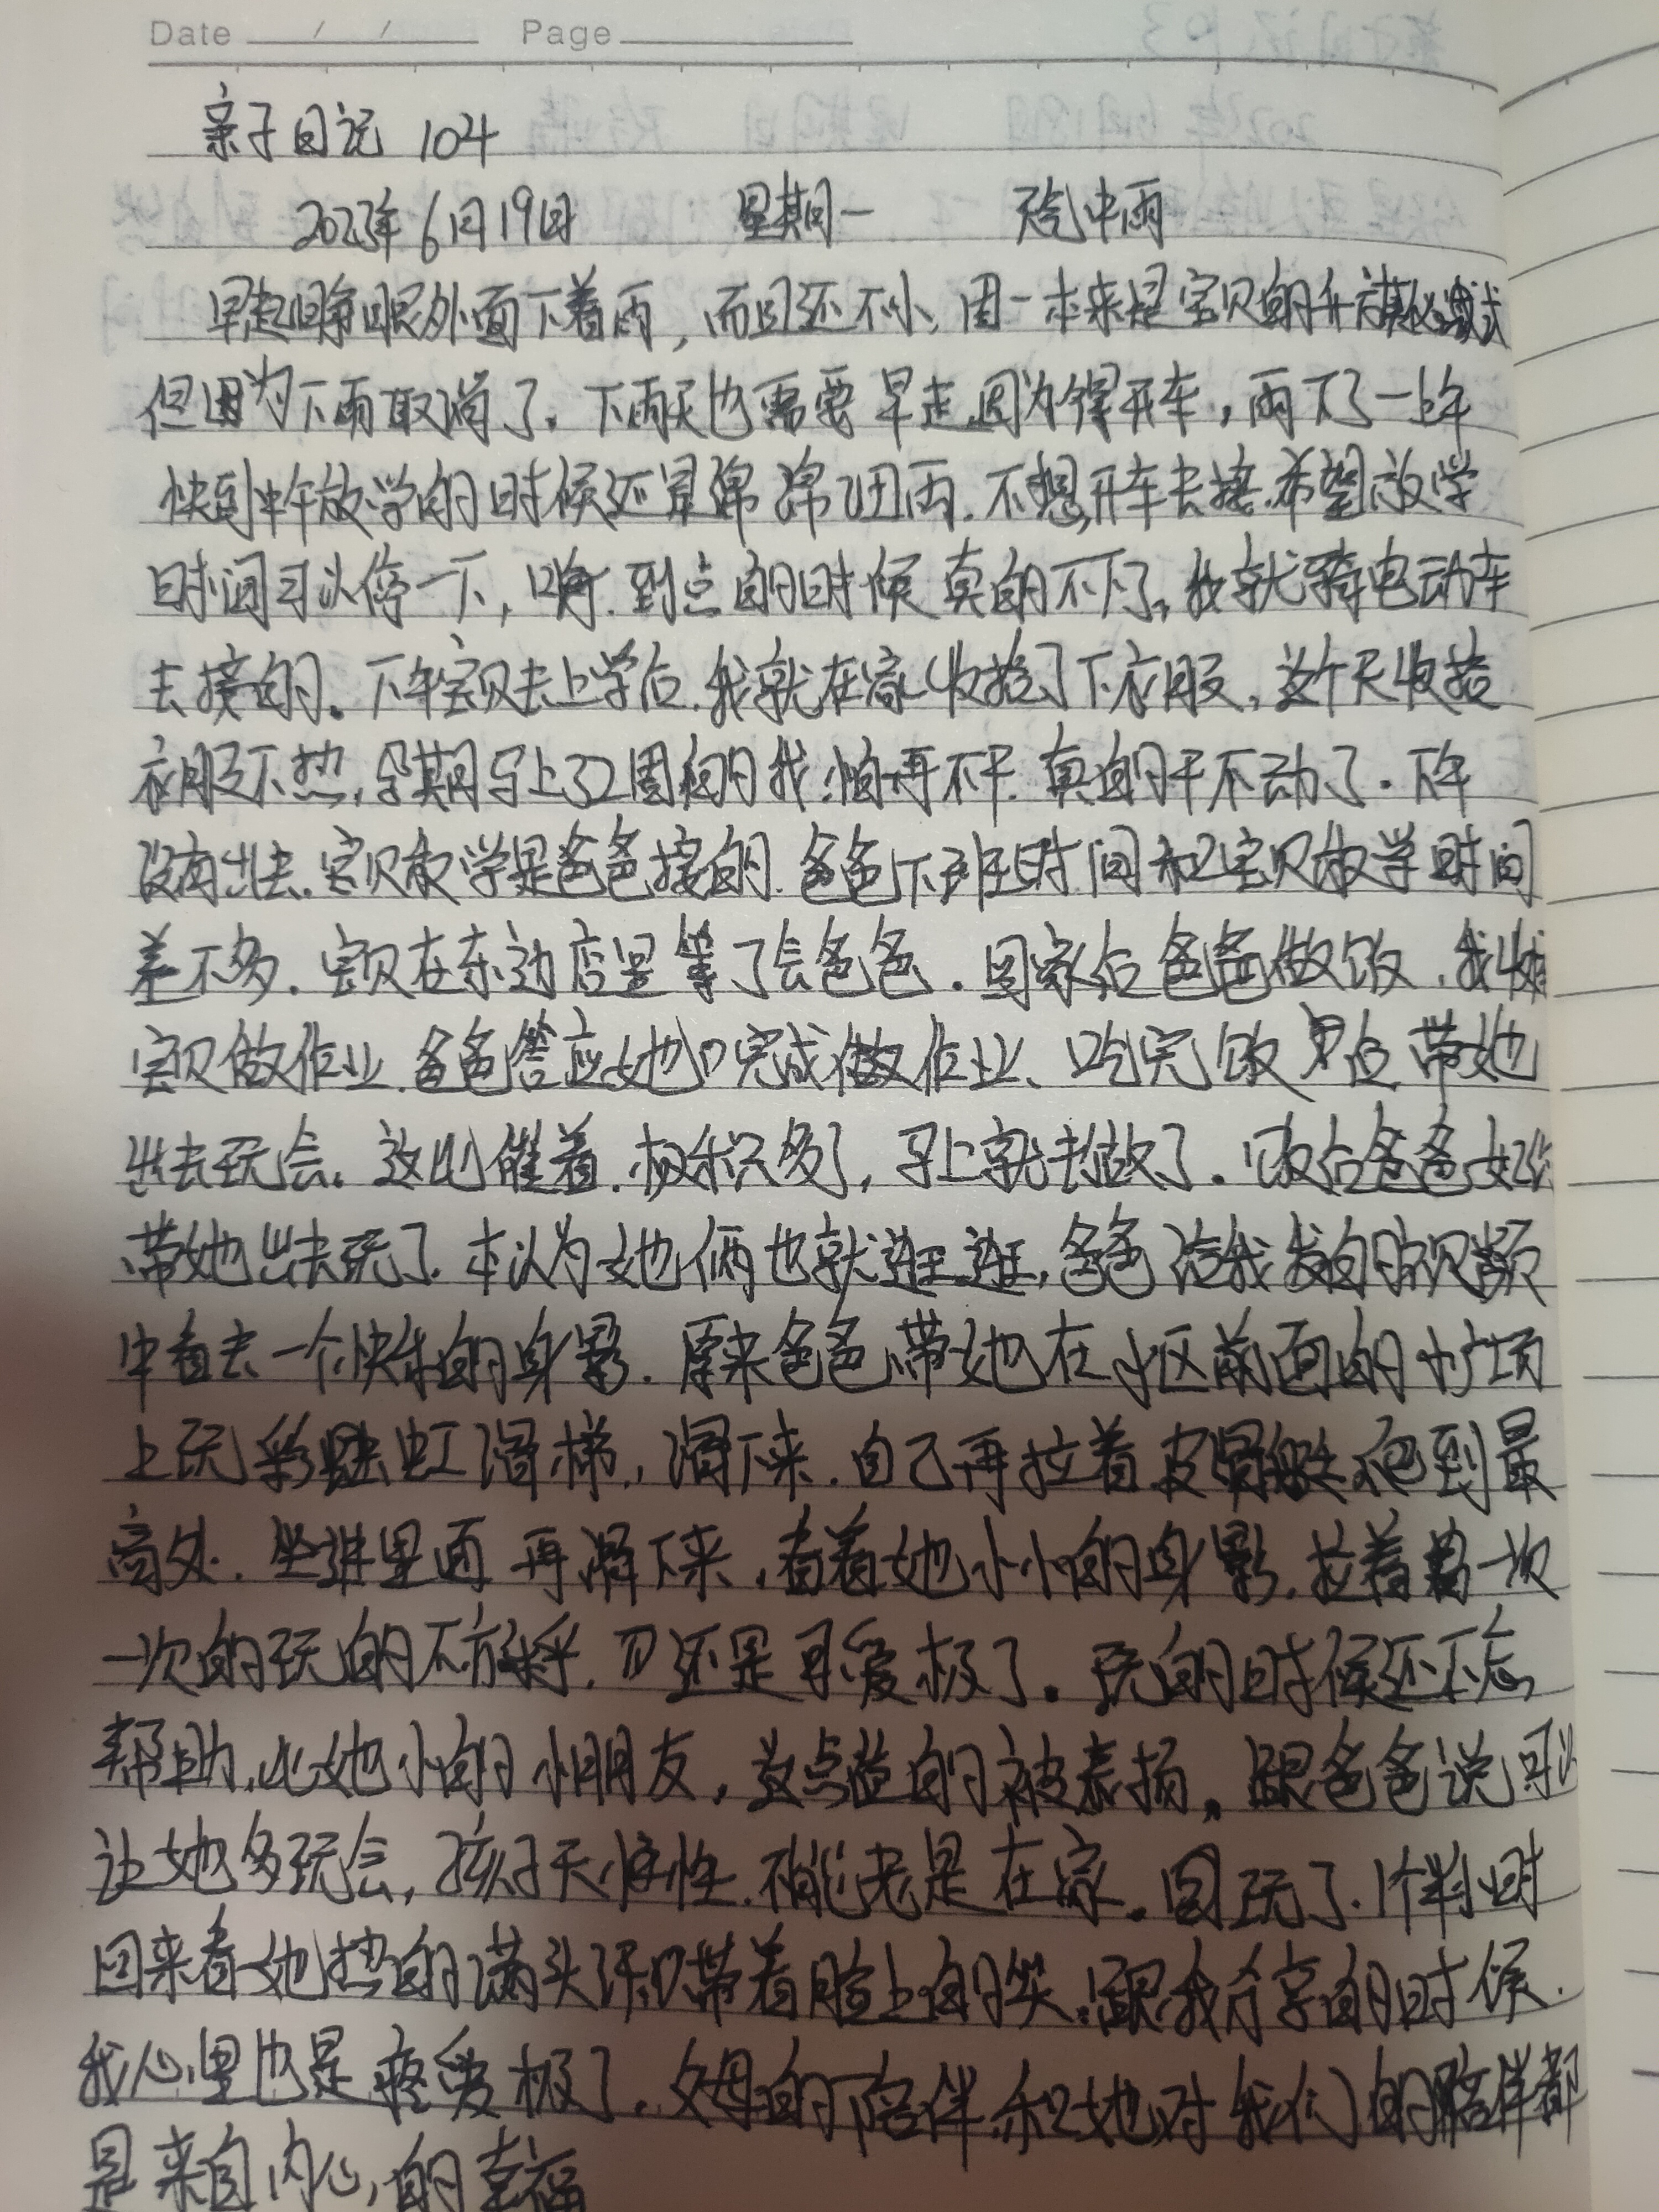 Date / / Page
亲子日记 104
2023年6月19日 星期一 天气中雨
早起睁眼外面下着雨，而且还不小，周一本来是宝贝的升旗仪式
但因为下雨取消了。下雨天也需要早走，因为得开车，雨下了一上午
快到中午放学的时候还是绵绵细雨．不想开车去接．希望放学
时间可以停一下，嗨．到点的时候真的不下了，我就骑电动车
去接的。下午宝贝去上学后．我就在家收拾了下衣服，这个天收拾
衣服不热，孕期马上32周的我，怕再不干．真的干不动了．下午
没有出去．宝贝放学是爸爸接的．爸爸下班时间和宝贝放学时间
差不多．宝贝在东边店里等了会爸爸．回家后爸爸做饭．我
宝贝做作业．爸爸答应她完成做作业、吃完饭早点带她
出去玩会．这也催着．积极多了，马上就去做了．饭后爸爸
带她出去玩了．本以为她俩也就逛逛，爸爸给我发的视频
中看去一个快乐的身影．原来爸爸带她在小区前面的小广场
上玩彩虹滑梯，滑下来．自己再拉着皮滑艇爬到最
高处．坐进里面再滑下来，看着她小小的身影．拉着一次
一次的玩的不亦乐乎．还是可爱极了．玩的时候还不忘
帮助比她小的小朋友，这点值的被表扬。跟爸爸说可以
让她多玩会，孩子天性．不能老是在家．玩了．1个半小时
回来看她热的满头汗带着脸上的笑．跟我分享的时候．
我心里也是疼爱极了．父母的陪伴和她对我们的陪伴都
是来自内心的幸福